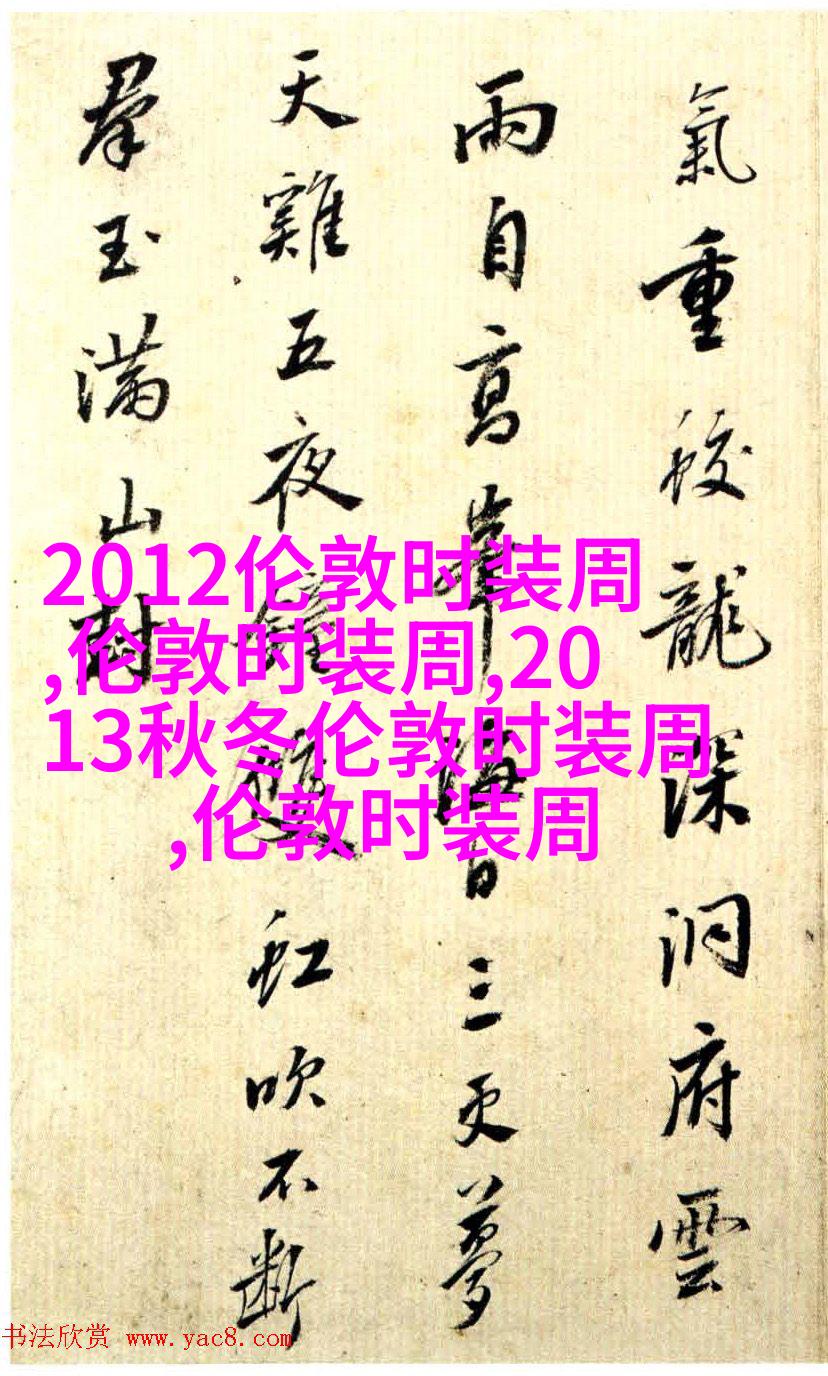 氣重蛟龍深洞府雲
雨自高峯海日三更夢
天雞五夜鐘雙虹吹不断
羣玉滿山封
2012伦敦时装周
,伦敦时装周,20
13秋冬伦敦时装周
,伦敦时装周
书法欣赏 www.yac8.com